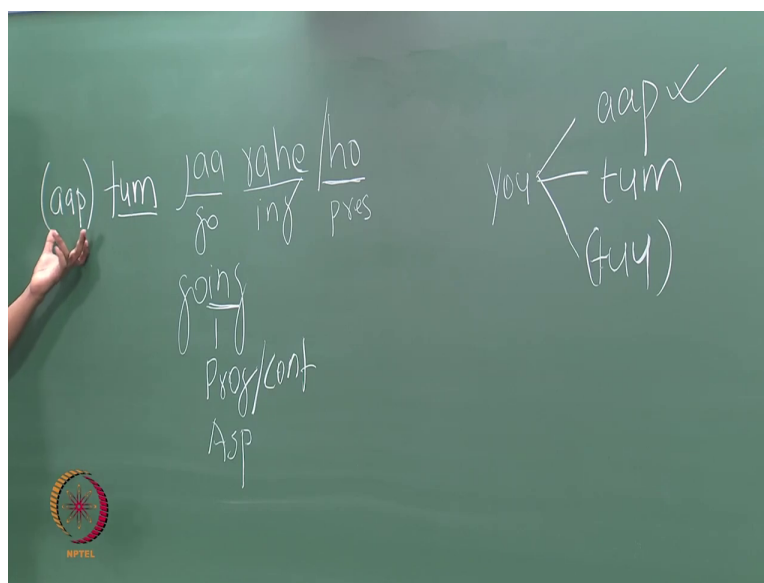 (aap) tum jaa rahe/ho
go ing pres
going
Prog/cont
Asp
you
aap
tum
(tuu)
NPTEL